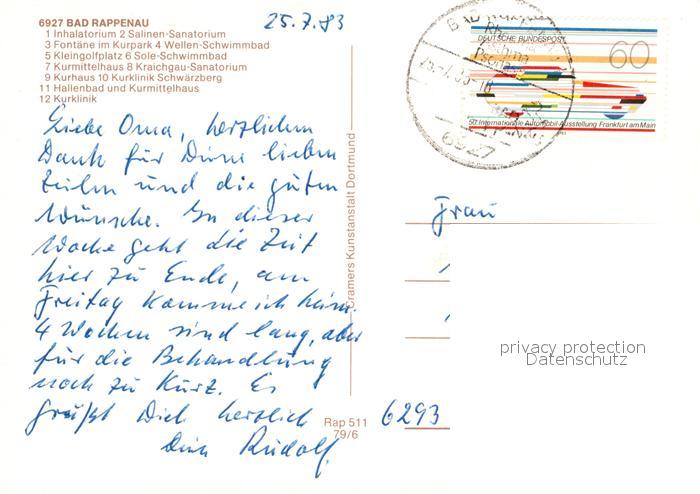 6927 BAD RAPPENAU
1 Inhalatorium 2 Salinen-Sanatorium
3 Fontäne im Kurpark 4 Wellen-Schwimmbad
5 Kleingolfplatz 6 Sole-Schwimmbad
7 Kurmittelhaus 8 Kraichgau-Sanatorium
9 Kurhaus 10 Kurklinik Schwärzberg
11 Hallenbad und Kurmittelhaus
12 Kurklinik
25.7.83
Liebe Oma, herzlichen
Dank für Deine lieben
Zeilen und die guten
Wünsche. In dieser
Woche geht die Zeit
hier zu Ende, am
Freitag komme ich heim.
4 Wochen sind lang, aber
für die Behandlung
noch zu kurz. Es
grüßt Dich herzlich
Dein Rudolf
Cramers Kunstanstalt Dortmund
Rap 511
79/6
DEUTSCHE BUNDESPOST
60
50. Internationale Automobil-Ausstellung Frankfurt am Main
BAD
Rheuma
Asthma
Psoriasis
6927
Frau
privacy protection
Datenschutz
6293